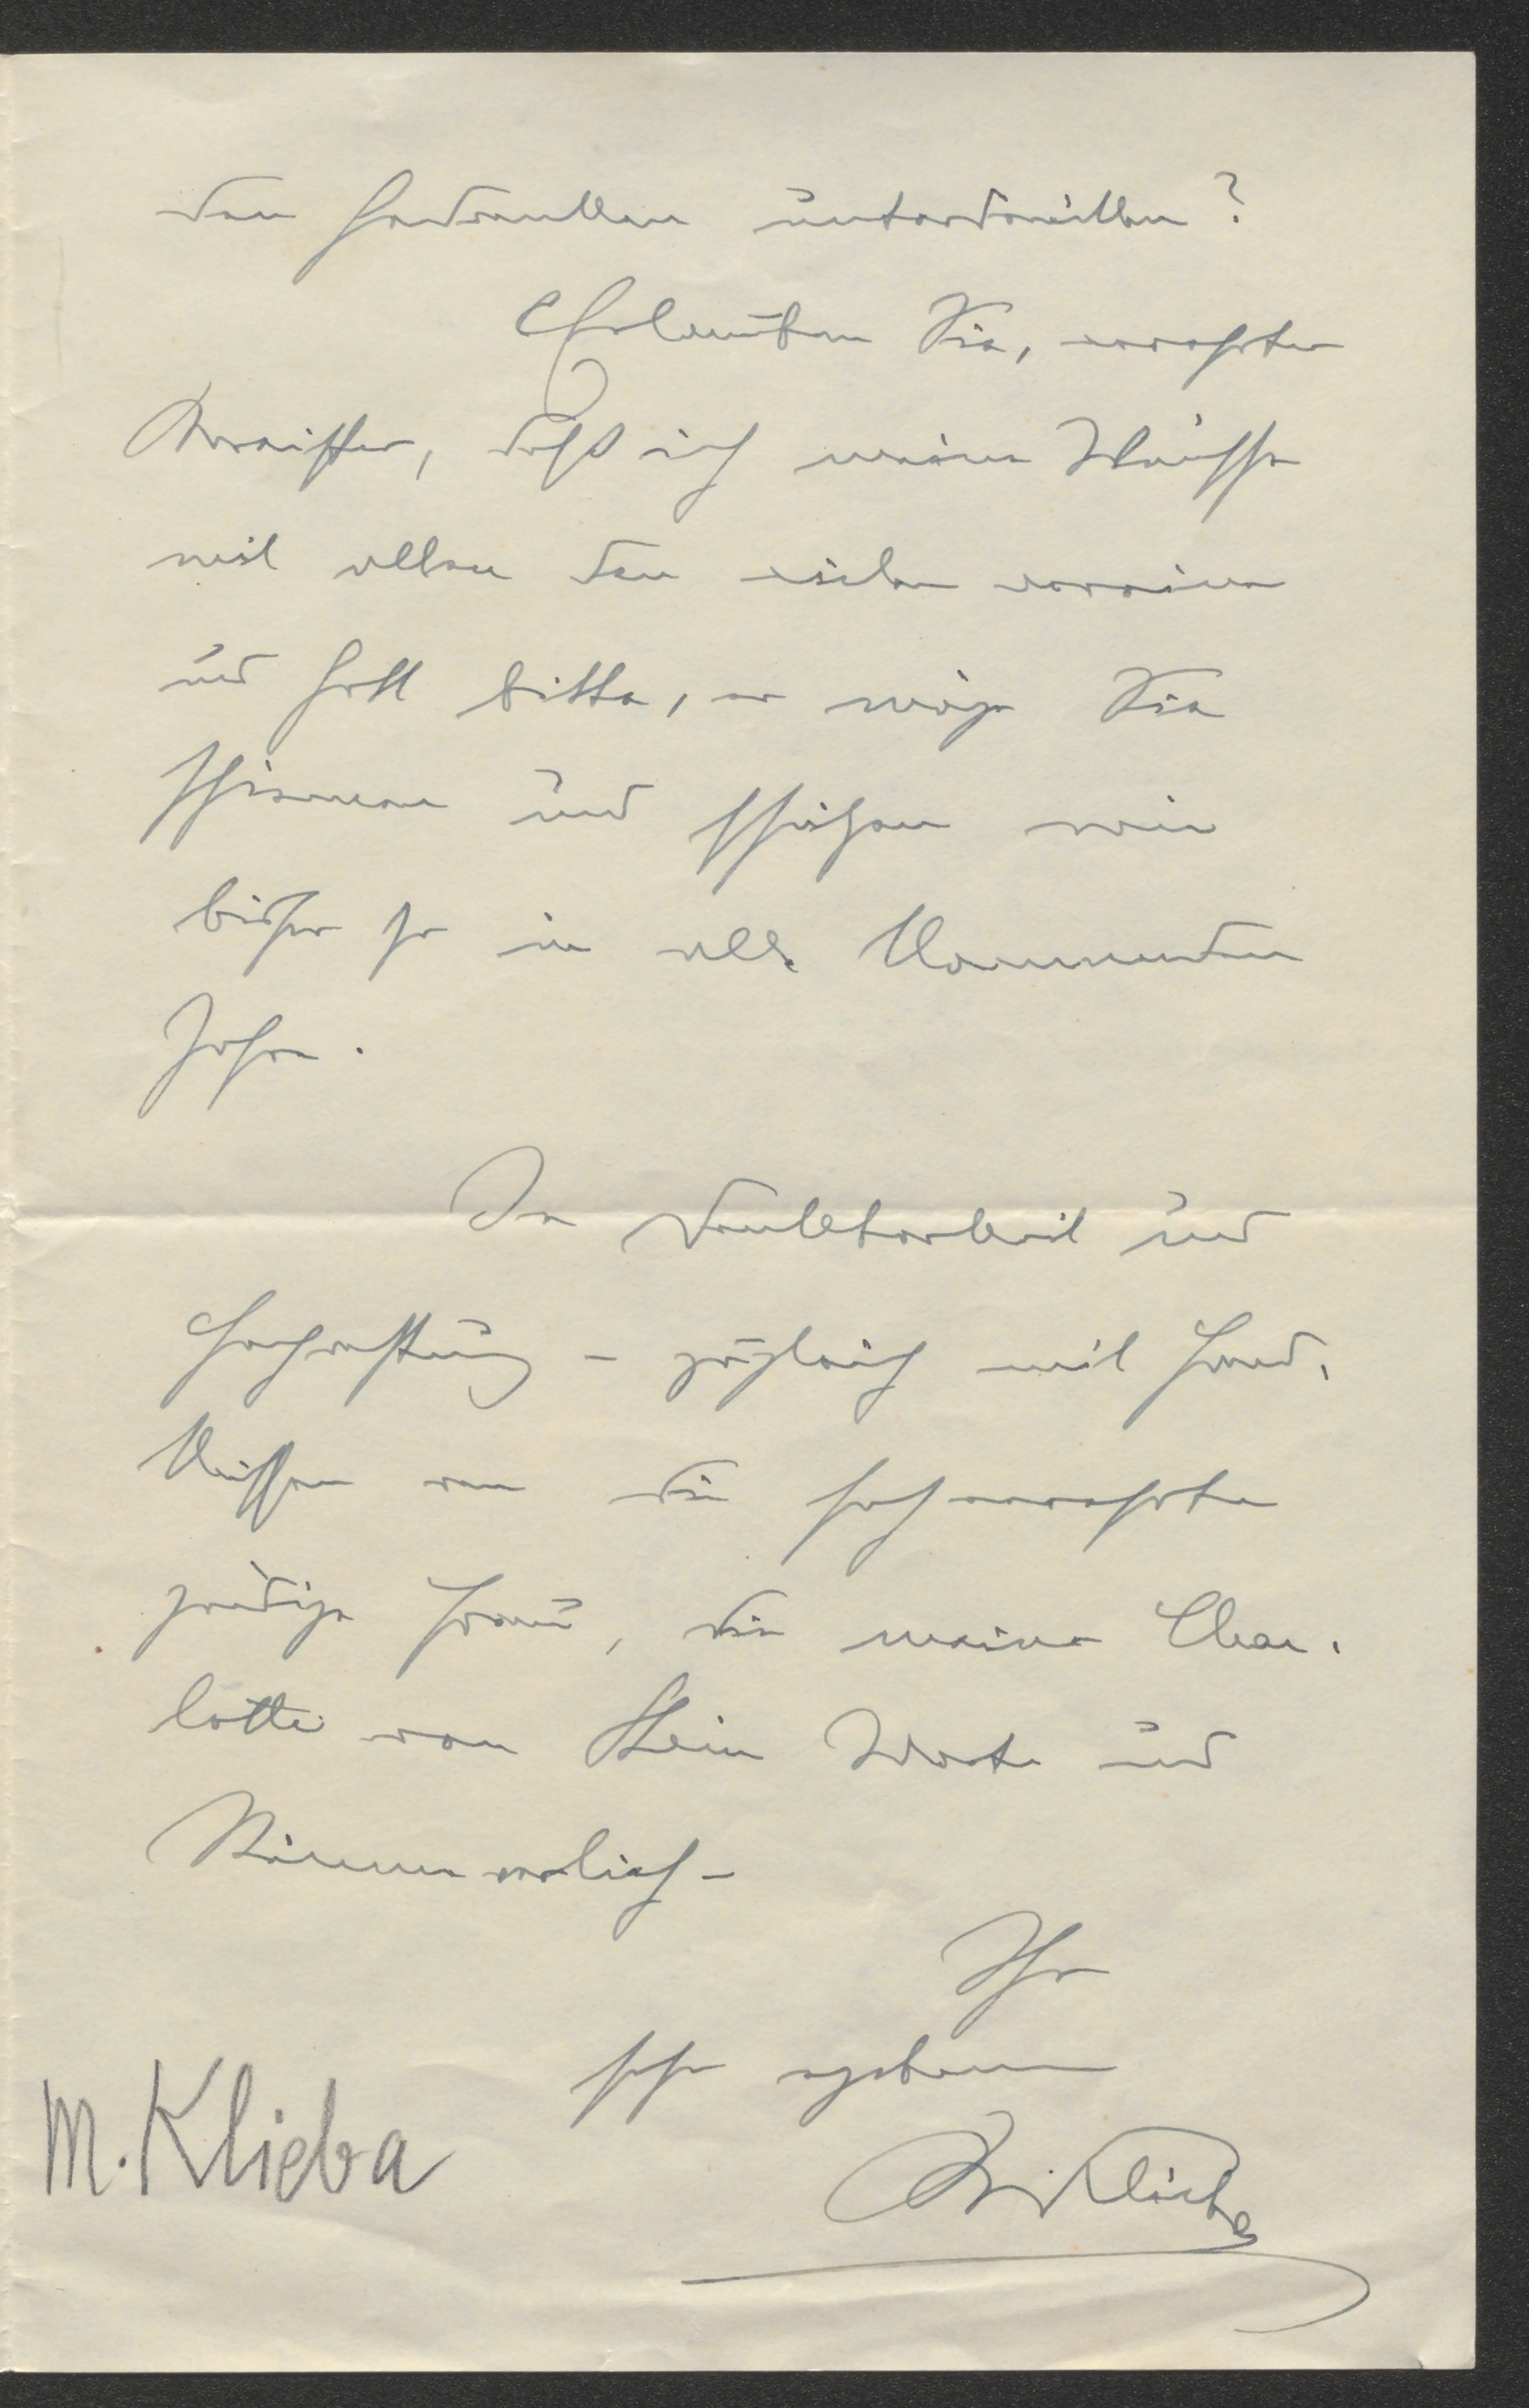 den Gedanken unterdrücken?
Erlauben Sie, verehrter
Meister, daß ich meine Wünsche
mit allen den vielen vereine
und Gott bitte, er möge Sie
schirmen und schützen wie
bisher so in alle kommenden
Jahre.
In Dankbarkeit und
Hochachtung – zugleich mit Hand-
küssen an die hochverehrte
gnädige Frau, die meiner Char-
lotte von Stein Worte und
Stimme verlieh –
Ihr
sehr ergebener
M. Klieba
M. Klieba